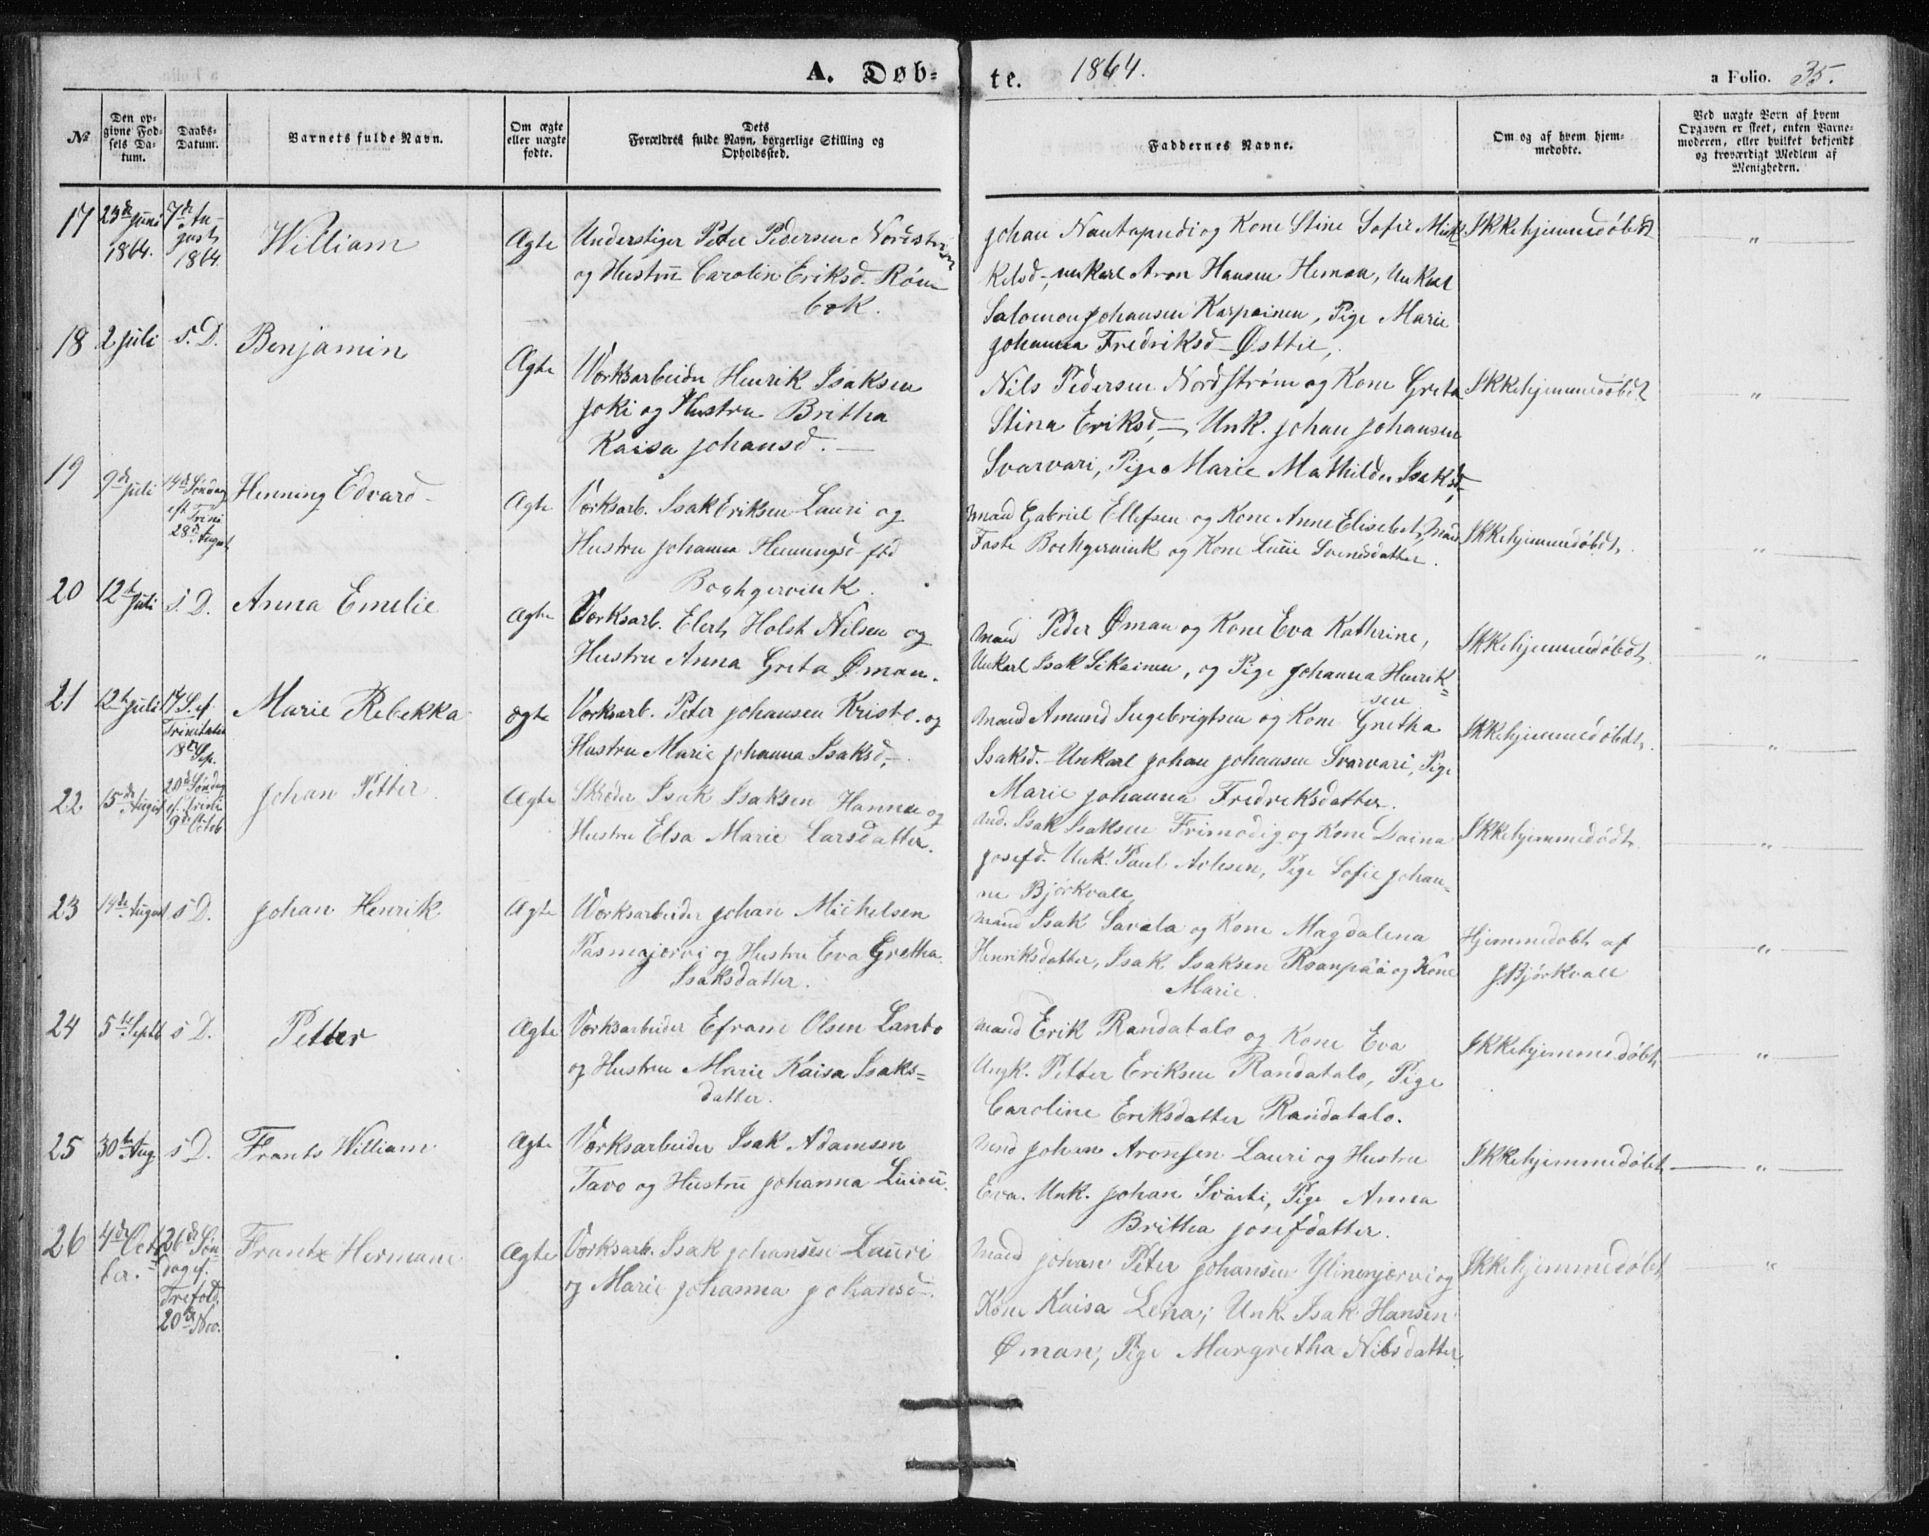 A. Døb-
te. 1864.
a Folio. 35.
No
Den op-
givne Fød-
sels Da-
tum.
Daabs-
Datum.
Barnets fulde Navn.
Om ægte
eller uægte
fødte.
Dets
Forældres fulde Navn, borgerlige Stilling og
Opholdssted.
Faddernes Navne.
Om og af hvem hjem-
medøbte.
Ved uægte Børn af hvem
Opgaven er skeet, enten Barne-
moderen, eller hvilket bekjendt
og troværdigt Medlem af
Menigheden.
17
23de Juni
1864.
7de Au-
gust
1864.
William
Ægte
Understiger Peter Pedersen Nordstrøm
og Hustru Carolin Eriksd. Røm-
bæk.
Johan Nautapudi og Kone Stine Sofie Mik-
kelsd., unkarl Aron Hansen Heman, Unkarl
Salomon Johansen Karpainen, Pige Marie
Johanna Fredriksd. Østtie,
Ikkehjemmedøbt
"
18
2 Juli
s. D.
Benjamin
Ægte
Værksarbeider Henrik Isaksen
Joki og Hustru Britha
Kaisa Johansd.
Nils Pedersen Nordstrøm og Kone Greta
Stina Eriksd., Unk. Johan Johansen
Svarvari, Pige Marie Mathilde Isaksd.,
Ikkehjemmedøbt
"
19
9de Juli
14de Søndag
eft Trini
28de August
Henning Edvard
Ægte
Værksarb. Isak Eriksen Lauri og
Hustru Johanna Henningsd. fød
Bochgervink.
Mand Gabriel Ellefsen og Kone Anne Elisebet, Mand
Faste Bochgervink og Kone Lucie Svendsdatter.
Ikkehjemmedøbt
"
20
12te Juli
s. D.
Anna Emelie
Ægte
Værksarb. Elert Holst Nilsen og
Hustru Anna Greta Øman.
Mand Peder Øman og Kone Eva Kathrine,
Unkarl Isak Sikainen, og Pige Johanna Henrik-
sen
Ikkehjemmedøbt
"
21
12te Juli
17 S. ef.
Trinitatis
18de Sep.
Marie Rebekka
ægte
Værksarb. Peter Johansen Kristo og
Hustru Marie Johanna Isaksd.
Mand Amund Ingebrigtsen og Kone Gretha
Isaksd. Unkarl Johan Johansen Svarvari, Pige
Marie Johanna Fredriksdatter.
Ikkehjemmedøbt
"
22
15de August
20de Søndag
ef. Trini
9de Octob
Johan Petter
Ægte
Skræder Isak Isaksen Hannu og
Hustru Elsa Marie Larsdatter.
Isak Isaksen Frimodig og Kone Daina
Josefd. Unk. Paul Achsen, Pige Sofie Johan-
ne Bjørkvall
Ikkehjemmedødt
"
23
14de August
s D.
Johan Henrik
Ægte
Værksarbeider Johan Michelsen
Pasmajervi og Hustru Eva Gretha
Isaksdatter.
Mand Isak Savela og Kone Magdalena
Henriksdatter, Isak Isaksen Roanpää og Kone
Marie.
Hjemmedøbt af
J. Bjørkvall
"
24
5te Septb
s D.
Petter
Ægte
Værksarbeider Efram Olsen Lanto
og Hustru Marie Kaisa Isaks-
datter.
Mand Erik Randatalo og Kone Eva
Ungk. Petter Eriksen Randatalo, Pige
Caroline Eriksdatter Randatalo.
Ikkehjemmedøbt
"
25
30te Aug
s D.
Frants William
Ægte
Værksarbeider Isak Adamsen
Tavo og Hustru Johanna
Mand Johan Aronsen Lauri og Hustru
Eva. Unk. Johan Svarti, Pige Anna
Britha Josefdatter.
Ikkehjemmedøbt
"
26
4de Octo-
ber.
26de Søn-
dag ef.
Trefold.
20de Nov.
Frantz Hermann
Ægte
Værksarb. Isak Johansen Lauri
og Marie Johanna Johansd.
Mand Johan Peter Johansen Ylinenjærvi og
Kone Kaisa Lena; Unk. Isak Hansen
Øman; Pige Margretha Nilsdatter
Ikkehjemmedøbt
"